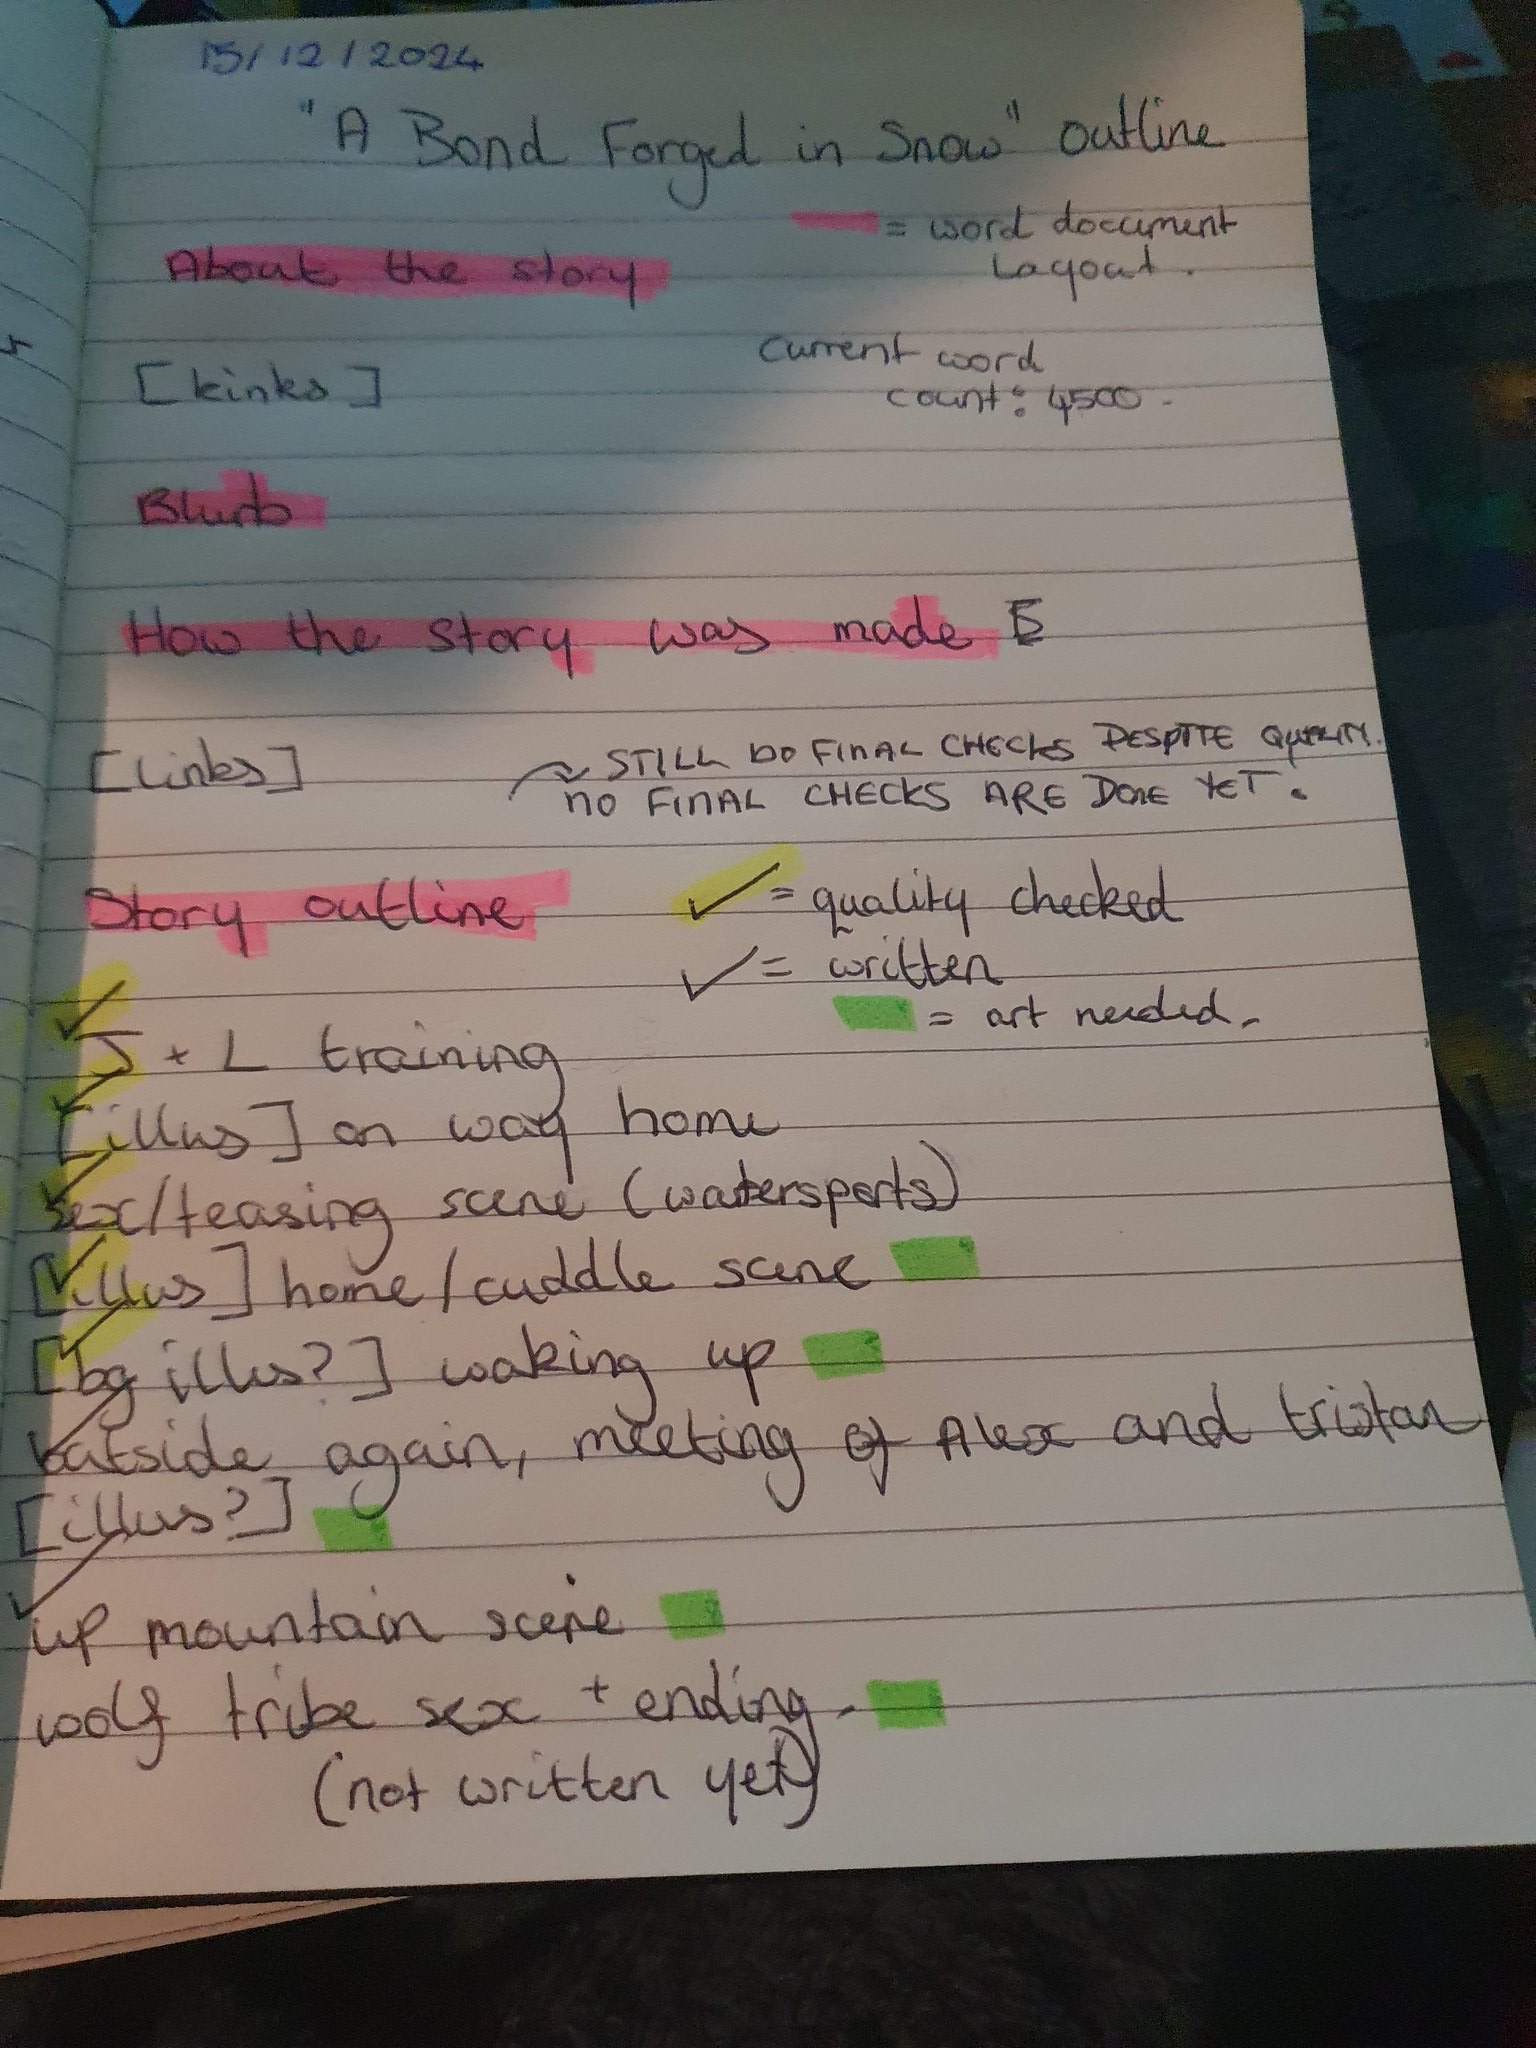 15/12/2024
"A Bond Forged in Snow" outline
= word document
Layout.
About the story
current word
count: 4500.
[kinks]
Blurb
How the story was made
[Links]
STILL DO FINAL CHECKS DESPITE QUALITY.
NO FINAL CHECKS ARE DONE YET.
Story outline
✓ = quality checked
✓ = written
= art needed.
✓ J + L training
✓ [illus] on way home
✓ sex/teasing scene (watersports)
✓ [illus] home/cuddle scene
✓ [bg illus?] waking up
✓ outside again, meeting of Alex and tristan
[illus?]
✓ up mountain scene
wolf tribe sex + ending.
(not written yet)